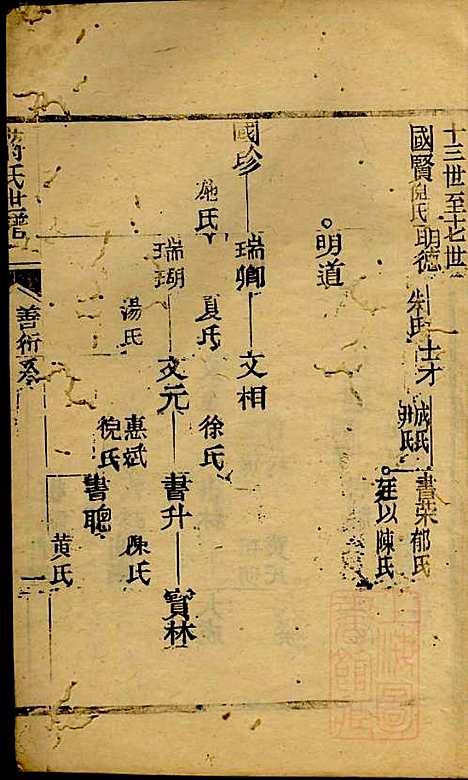 十三世至十七世
國賢 倪氏 明德 朱氏 士才 成氏 尹氏 書荣 郁氏
廷以 陳氏
明道
國珍 瑞卿 文相
施氏 夏氏 徐氏
瑞瑚 文元 書升 寳林
湯氏 惠斌 陳氏
倪氏
書聰
黄氏
氏世譜
善術
一